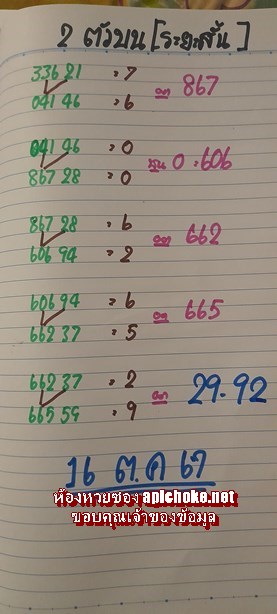 2 ตัวบน [ระยะสั้น]
336 21 = 7
041 46 = 6
867
041 46 = 0
867 28 = 0
0 = 606
867 28 = 6
606 94 = 2
662
606 94 = 6
662 37 = 5
665
662 37 = 2
665 59 = 9
29-92
16 ต.ค 67
ห้องหวยซอง apichoke.net
ขอบคุณเจ้าของข้อมูล